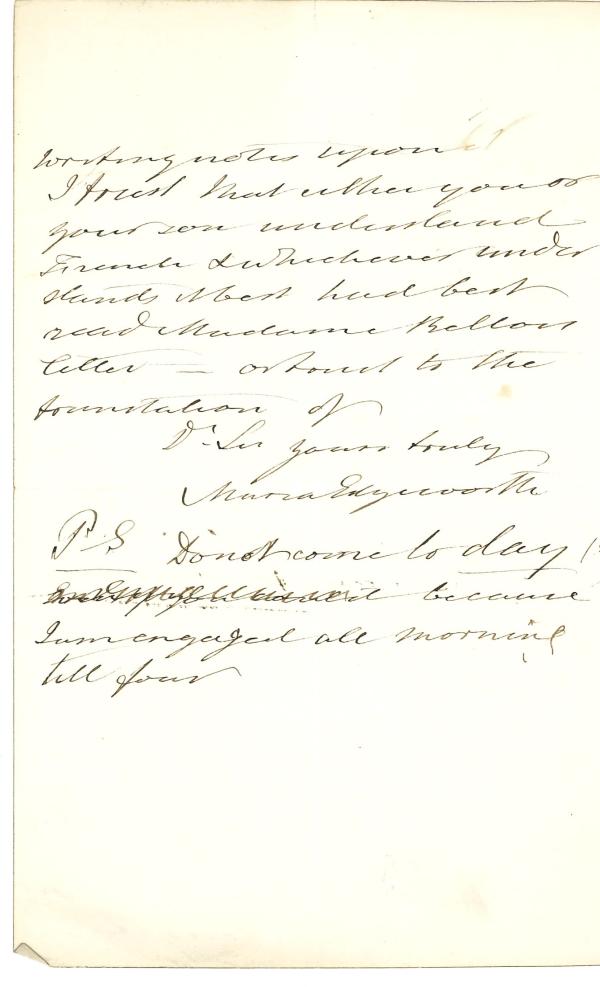 writing notes upon it
I trust that either you or
your son understand
French & whichever under
stands it best had best
read Madame Bellocs
letter — or trust to the
translation of
Dr. Sir yours truly
Maria Edgeworth
P.S Do not come to day
because
I am engaged all morning
till four